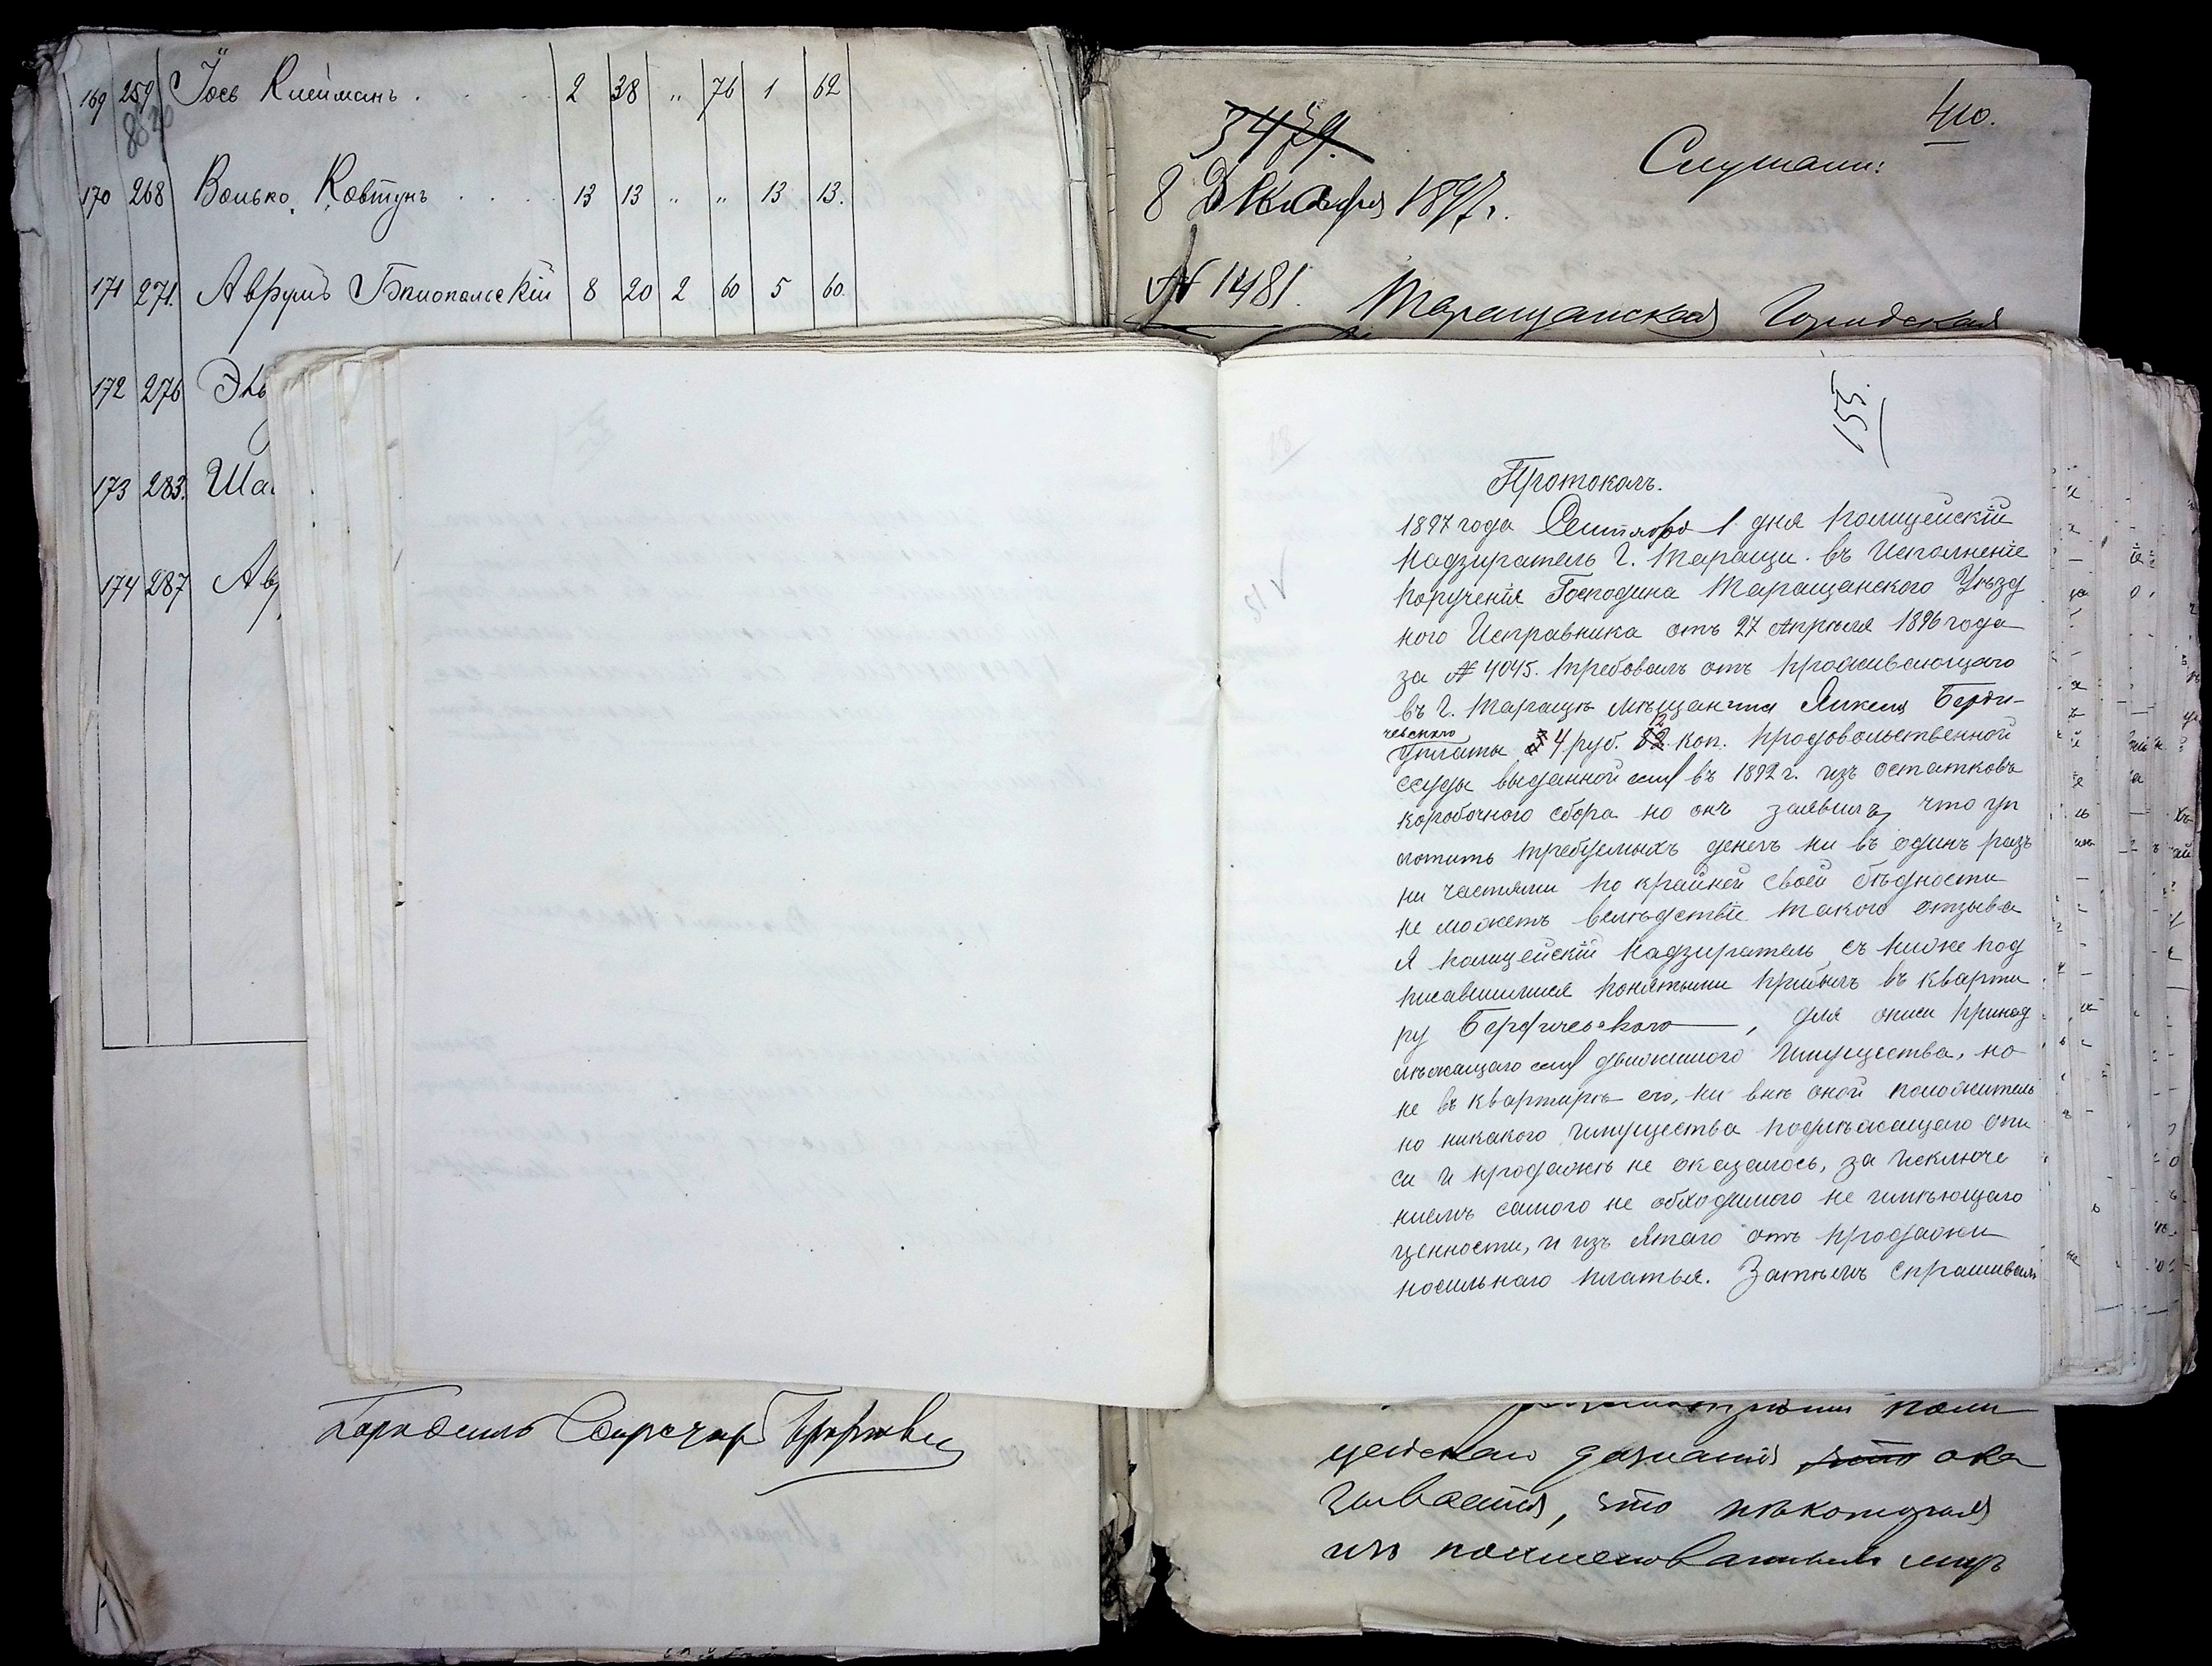 169 259 Іось Клейманъ . . . . 2 38 „ 76 1 62
170 268 Волько Ковтунъ . . . . 13 13 „ „ 13 13.
171 271. Аврумъ Бялопольскій 8 20 2 60 5 60.
172 276
173 283.
174 287
410.
3479.
Слушали:
8 Декабря 1897 г.
№ 1481.
Таращанская Городская
155.
Протоколъ.
1897 года Сентября 1 дня Полицейскій
Надзиратель г. Таращи. въ Исполненіе
Порученія Господина Таращанского Уѣзд
ного Исправника отъ 27 Апрѣля 1896 года
за № 4045. требовалъ отъ проживающаго
въ г. Таращѣ мѣщанина Янкеля Берди-
чевского
Уплаты 4 руб. 12 коп. продовольственной
ссуды выданной ему въ 1892 г. изъ остатковъ
коробочного сбора но онъ заявилъ, что уп
лотить требуемыхъ денегъ ни въ одинъ разъ
ни частями по крайней своей бѣдности
не можетъ вслѣдствіе такого отзыва
Я полицейскій Надзиратель съ ниже под
писавшимися понятыми прибылъ въ кварти
ру Бердичевского, для описи принад
лѣжащаго ему движимого Имущества, но
не въ квартирѣ его, ни внѣ оной положитель
но никакого имущества подлѣжащаго опи
си и продажѣ не оказалось, за исключе
ніемъ самого не обходимого не имѣющаго
ценности, и изъ ятаго отъ продажи
носильнаго платья. Затѣмъ спрашивалъ
поли
цейскаго дознанія что ока
зывается, что нѣкоторыя
изъ поименованныхъ лицъ